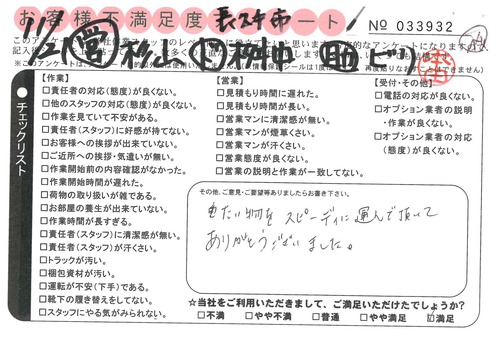 お客様不満足度
ート
No 033932
チェックリスト
【作業】
□責任者の対応(態度)が良くない。
□他のスタッフの対応(態度)が良くない。
□作業を見ていて不安がある。
□責任者(スタッフ)に好感が持てない。
□お客様への挨拶が出来ていない。
□ご近所への挨拶・気遣いが無い。
□作業開始前の内容確認がなかった。
□作業開始時間が遅れた。
□荷物の取り扱いが雑である。
□お部屋の養生が出来ていない。
□作業時間が長すぎる。
□責任者(スタッフ)に清潔感が無い。
□責任者(スタッフ)が汗くさい。
□トラックが汚い。
□梱包資材が汚い。
□運転が不安(下手)である。
□靴下の履き替えをしてない。
□スタッフにやる気がみられない。
【営業】
□見積もり時間に遅れた。
□見積もり時間が長い。
□営業マンに清潔感が無い。
□営業マンが煙草くさい。
□営業マンが汗くさい。
□営業態度が良くない。
□営業の説明と作業が一致してない。
【受付・その他】
□電話の対応が良くない。
□オプション業者の説明
・作業が良くない。
□オプション業者の対応
(態度)が良くない。
その他、ご意見・ご要望等ありましたらお書き下さい。
重たい物をスピーディに運んで頂いて
ありがとうございました。
☆当社をご利用いただきまして、ご満足いただけたでしょうか?
□不満 □やや不満 □普通 □やや満足 ☑満足